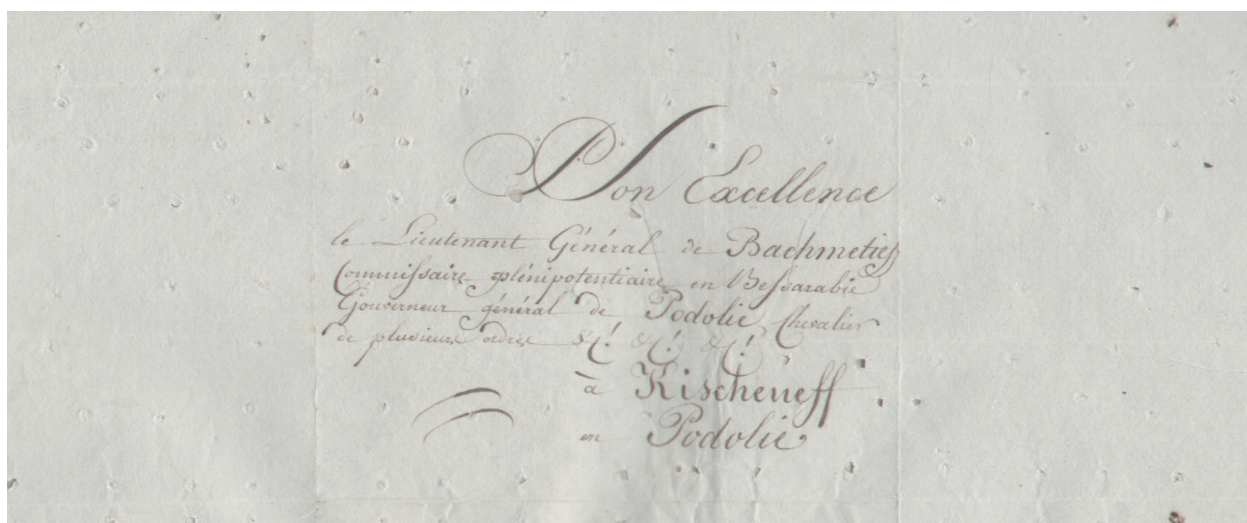 Son Excellence
le Lieutenant Général de Bachmetieff
Commissaire plénipotentiaire en Bessarabie
Gouverneur général de Podolie, Chevalier
de plusieurs ordres &C! &C! &C!
à Kischeneff
en Podolie